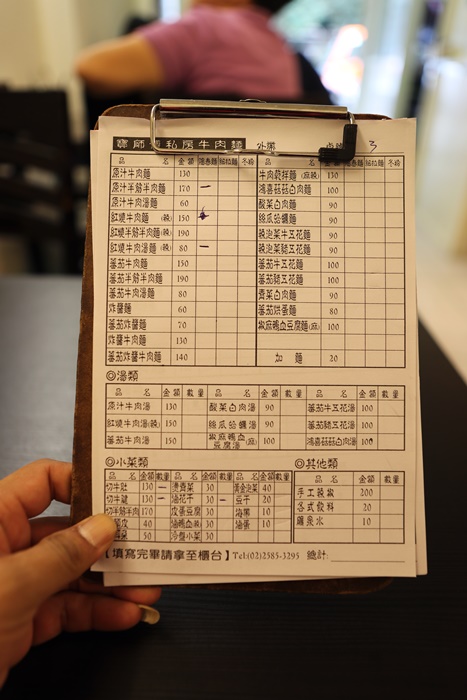 私房牛肉麵 外帶 3
品 名 金額 麵 冬粉 品 名 金額 冬粉
原汁牛肉麵 130 牛肉乾拌麵(麻辣) 130
原汁半筋半肉麵 170 鴻喜菇菇白肉麵 100
原汁牛肉湯麵 60 酸菜白肉麵 90
紅燒牛肉麵 (辣) 150 絲瓜蛤蠣麵 90
紅燒半筋半肉麵(辣) 190 辣泡菜牛五花麵 90
紅燒牛肉湯麵 (辣) 80 辣泡菜豬五花麵 90
蕃茄牛肉麵 150 蕃茄牛五花麵 100
蕃茄半筋半肉麵 190 蕃茄豬五花麵 100
蕃茄牛肉湯麵 80 白肉麵 90
炸醬麵 60 蕃茄烘蛋麵 80
蕃茄炸醬麵 70 椒麻鴨血豆腐麵(麻) 100
炸醬牛肉麵 130
蕃茄炸醬牛肉麵 140 加 麵 20
◎湯類
品 名 金額 數量 品 名 金額 數量 品 名 金額 數量
原汁牛肉湯 130 酸菜白肉湯 90 蕃茄牛五花湯 100
紅燒牛肉湯(辣) 150 絲瓜蛤蠣湯 90 蕃茄豬五花湯 100
蕃茄牛肉湯 150 椒麻鴨血豆腐湯(麻) 100 鴻喜菇菇白肉湯 100
◎小菜類 ◎其他類
品 名 金額 數量 品 名 金額 數量 品 名 金額 數量 品 名 金額 數量
切牛肚 130 燙青菜 30 黃金泡菜 40 手工辣椒 200
切牛腱 130 油花干 30 豆干 20 各式飲料 20
切半筋半肉 170 皮蛋豆腐 30 海帶 10 礦泉水 10
皮 40 油鴨血(辣) 30 滷蛋 10
50 冷盤小菜 30
【填寫完畢請拿至櫃台】Tel:(02)2585-3295 總計: